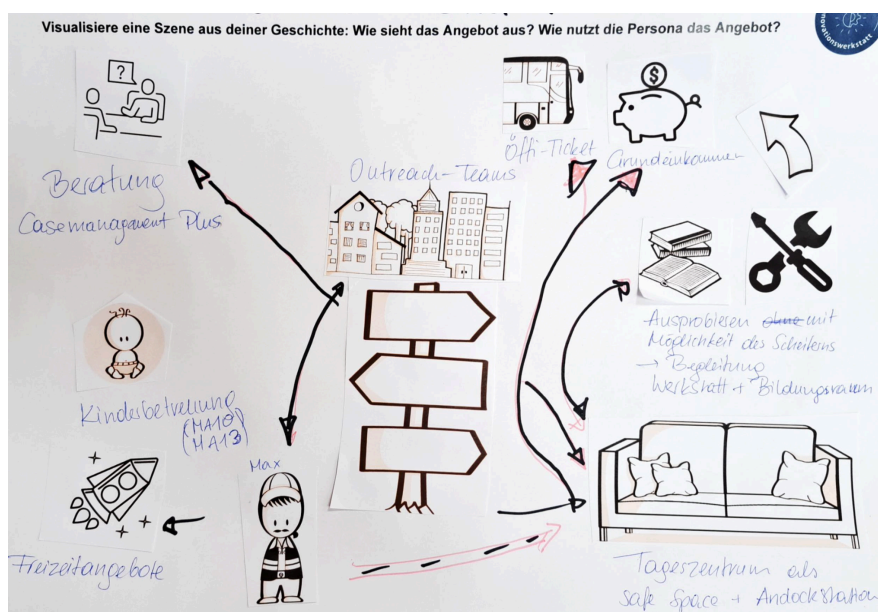 Visualisiere eine Szene aus deiner Geschichte: Wie sieht das Angebot aus? Wie nutzt die Persona das Angebot?
novationswerkstatt
?
$
Öffi-Ticket
Grundeinkommen
Outreach-Teams
Beratung
Casemanagement Plus
Ausprobieren ohne mit
Möglichkeit des Scheiterns
→ Begleitung
Werkstatt + Bildungsraum
Kinderbetreuung
(MA10)
(MA13)
Max
Freizeitangebote
Tageszentrum als
safe space + Andockstation